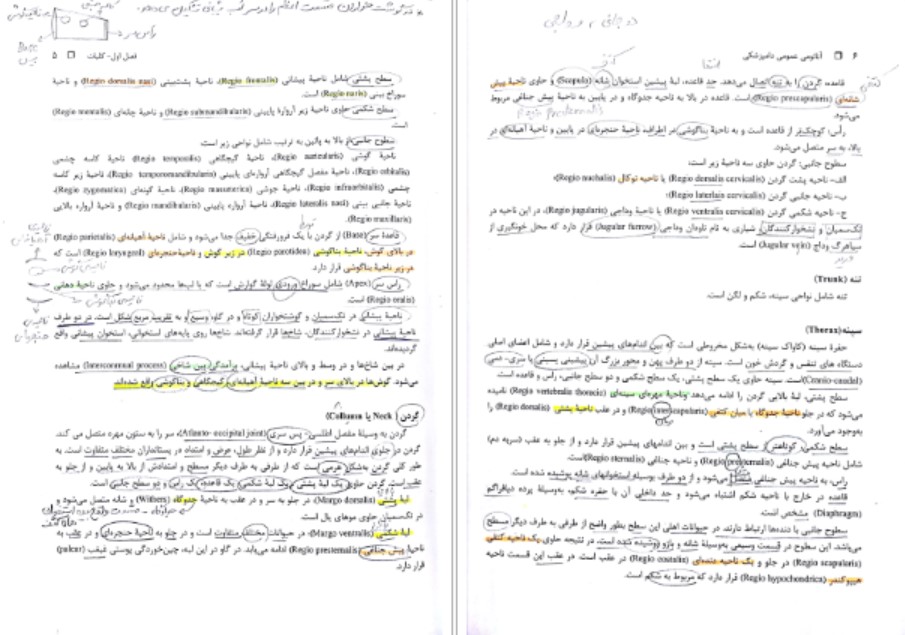 فصل اول- کلیات ❑ ۵
سطح پشتی شامل ناحیهٔ پیشانی (Regio frontalis)، ناحیهٔ پشت‌بینی (Regio dorsalis nasi) و ناحیهٔ
سوراخ بینی (Regio naris) است.
سطح شکمی حاوی ناحیهٔ زیر آرواره پایینی (Regio submandibularis) و ناحیهٔ چانه‌ای (Regio mentalis)
است.
سطوح جانبی از بالا به پائین به ترتیب شامل نواحی زیر است
ناحیهٔ گوشی (Regio auricularis)، ناحیهٔ گیجگاهی (Regio temporalis) ناحیهٔ کاسه چشمی
(Regio orbitalis)، ناحیهٔ مفصل گیجگاهی آرواره‌ای پایینی (Regio temporomandibularis)، ناحیهٔ زیر کاسه
چشمی (Regio infraorbitalis)، ناحیهٔ جوشی (Regio masseterica)، ناحیهٔ گونه‌ای (Regio zygomatica)،
ناحیهٔ جانبی بینی (Regio lateralis nasi)، ناحیهٔ آرواره پایینی (Regio mandibularis) و ناحیهٔ آرواره بالایی
(Regio maxillaris).
قاعدهٔ سر (Base) از گردن با یک فرورفتگی خفیف جدا می‌شود و شامل ناحیهٔ آهیانه‌ای (Regio parietalis)
در بالای گوش، ناحیهٔ بناگوشی (Regio parotidea) در زیر گوش و ناحیهٔ حنجره‌ای (Regio laryngea) است که
در زیر ناحیهٔ بناگوشی قرار دارد.
رأس سر (Apex) شامل سوراخ ورودی لولهٔ گوارش است که با لب‌ها محدود می‌شود و حاوی ناحیهٔ دهانی
(Regio oralis) است.
ناحیهٔ پیشانی در تک‌سمیان و گوشتخواران کوتاه و در گاو، وسیع و به تقریب مربع شکل است. در دو طرف
ناحیهٔ پیشانی در نشخوارکنندگان، شاخ‌ها قرار گرفته‌اند. شاخ‌ها روی پایه‌های استخوانی، استخوان پیشانی واقع
گردیده‌اند.
در بین شاخ‌ها و در وسط و بالای ناحیهٔ پیشانی، برآمدگی بین شاخی (Intercornual process) مشاهده
می‌شود. گوش‌ها در بالای سر و در بین سه ناحیهٔ آهیانه‌ای، گیجگاهی و بناگوشی واقع شده‌اند.
گردن ( Neck یا Collumn)
گردن به وسیلهٔ مفصل اطلسی- پس سری (Atlanto- occipital joint)، سر را به ستون مهره متصل می کند.
گردن در جلوی اندام‌های پیشین قرار دارد و از نظر طول، عرض و امتداد در پستانداران مختلف متفاوت است. به
طور کلی گردن به‌شکل هرمی است که از طرفی به طرف دیگر مسطح و امتدادش از بالا به پایین و از جلو به
عقب است. گردن حاوی یک لبهٔ پشتی، یک لبهٔ شکمی، یک قاعده، یک رأس و دو سطح جانبی است.
لبهٔ پشتی (Margo dorsalis) در جلو به سر و در عقب به ناحیهٔ جدوگاه (Withers) و شانه متصل می‌شود و
در تک‌سمیان حاوی موهای یال است.
لبهٔ شکمی (Margo ventralis)، در حیوانات مختلف متفاوت است و در جلو به ناحیهٔ حنجره‌ای و در عقب به
ناحیهٔ پیش جناغی (Regio presternalis) ادامه می‌یابد. در گاو در این لبه، چین‌خوردگی پوستی غبغب (palear)
قرار دارد.
۶ ❑ آناتومی عمومی دامپزشکی
قاعده گردن را به تنه اتصال می‌دهد. حد قاعده، لبهٔ پیشین استخوان شانه (Scapula) و حاوی ناحیهٔ پیش
شانه‌ای (Regio prescapularis) است. قاعده در بالا به ناحیه جدوگاه و در پایین به ناحیهٔ پیش جناغی مربوط
می‌شود.
رأس، کوچک‌تر از قاعده است و به ناحیهٔ بناگوشی در اطراف، ناحیهٔ حنجره‌ای در پایین و ناحیهٔ آهیانه‌ای در
بالا، به سر متصل می‌شود.
سطوح جانبی: گردن حاوی سه ناحیهٔ زیر است:
الف- ناحیه پشت گردن (Regio dorsalis cervicalis) یا ناحیه نوکال (Regio nuchalis)؛
ب- ناحیه جانبی گردن (Regio laterlais cervicalis)؛
ج- ناحیه شکمی گردن (Regio ventralis cervicalis) یا ناحیهٔ وداجی (Regio jugularis). در این ناحیه در
تک‌سمیان و نشخوارکنندگان، شیاری به نام ناودان وداجی (Jugular furrow) قرار دارد که محل خونگیری از
سیاهرگ وداج (Jugular vein) است.
تنه (Trunk)
تنه شامل نواحی سینه، شکم و لگن است.
سینه (Thorax)
حفرهٔ سینه (کاواک سینه) به‌شکل مخروطی است که بین اندام‌های پیشین قرار دارد و شامل اعضای اصلی
دستگاه های تنفس و گردش خون است. سینه از دو طرف پهن و محور بزرگ آن پیشینی پسینی یا سری- دمی
(Cranio-caudal) است. سینه حاوی یک سطح پشتی، یک سطح شکمی و دو سطح جانبی، رأس و قاعده است
سطح پشتی، لبهٔ بالایی گردن را ادامه می‌دهد. ناحیهٔ مهره‌ای سینه‌ای (Regio vertebralis thoracic) نامیده
می‌شود که در جلو ناحیهٔ جدوگاه یا میان کتفی (Regio interscapularis) و در عقب ناحیهٔ پشتی (Regio dorsalis) را
به‌وجود می‌آورد.
سطح شکمی، کوتاهتر از سطح پشتی است و بین اندامهای پیشین قرار دارد و از جلو به عقب (سربه دم)
شامل ناحیه پیش جناغی (Regio presternalis) و ناحیه جناغی (Regio sternalis) است.
رأس، به ناحیه پیش جناغی متصل می‌شود و از دو طرف بوسیله استخوانهای شانه پوشیده شده است.
قاعده در خارج با ناحیه شکم اشتباه می‌شود و حد داخلی آن با حفره شکم، به‌وسیلهٔ پرده دیافراگم
(Diaphragm) مشخص است.
سطوح جانبی با دنده‌ها ارتباط دارند. در حیوانات اهلی این سطح بطور واضح از طرفی به طرف دیگر مسطح
می‌باشد. این سطوح در قسمت وسیعی به‌وسیلهٔ شانه و بازو پوشیده شده است. در نتیجه حاوی یک ناحیه کتفی
(Regio scapularis) در جلو و یک ناحیه دنده‌ای (Regio costalis) در عقب است. در عقب این قسمت ناحیه
هیپوکندر (Regio hypochondrica) قرار دارد که مربوط به شکم است.